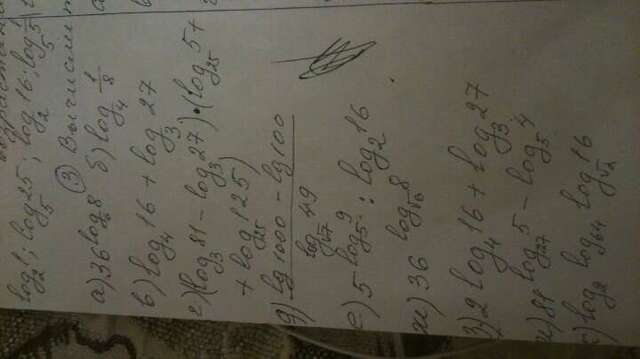 log₂1; log₅25; log₂16; log₅ 1/5
③ Вычисли
а) 36^log₆8 б) log₄ 1/8
в) log₄16 + log₃27
г) (log₃81 - log₃27) · (log₂₅5 +
+ log₂₅125)
д) lg1000 - lg100
log_√7 49
е) 5^log₅9 : log₂16
ж) 36^log₆8
з) 2^log₄16 + log₃27
и) 81^log₂₇5 - log₅4
log₂ log₆₄ log_√2 16